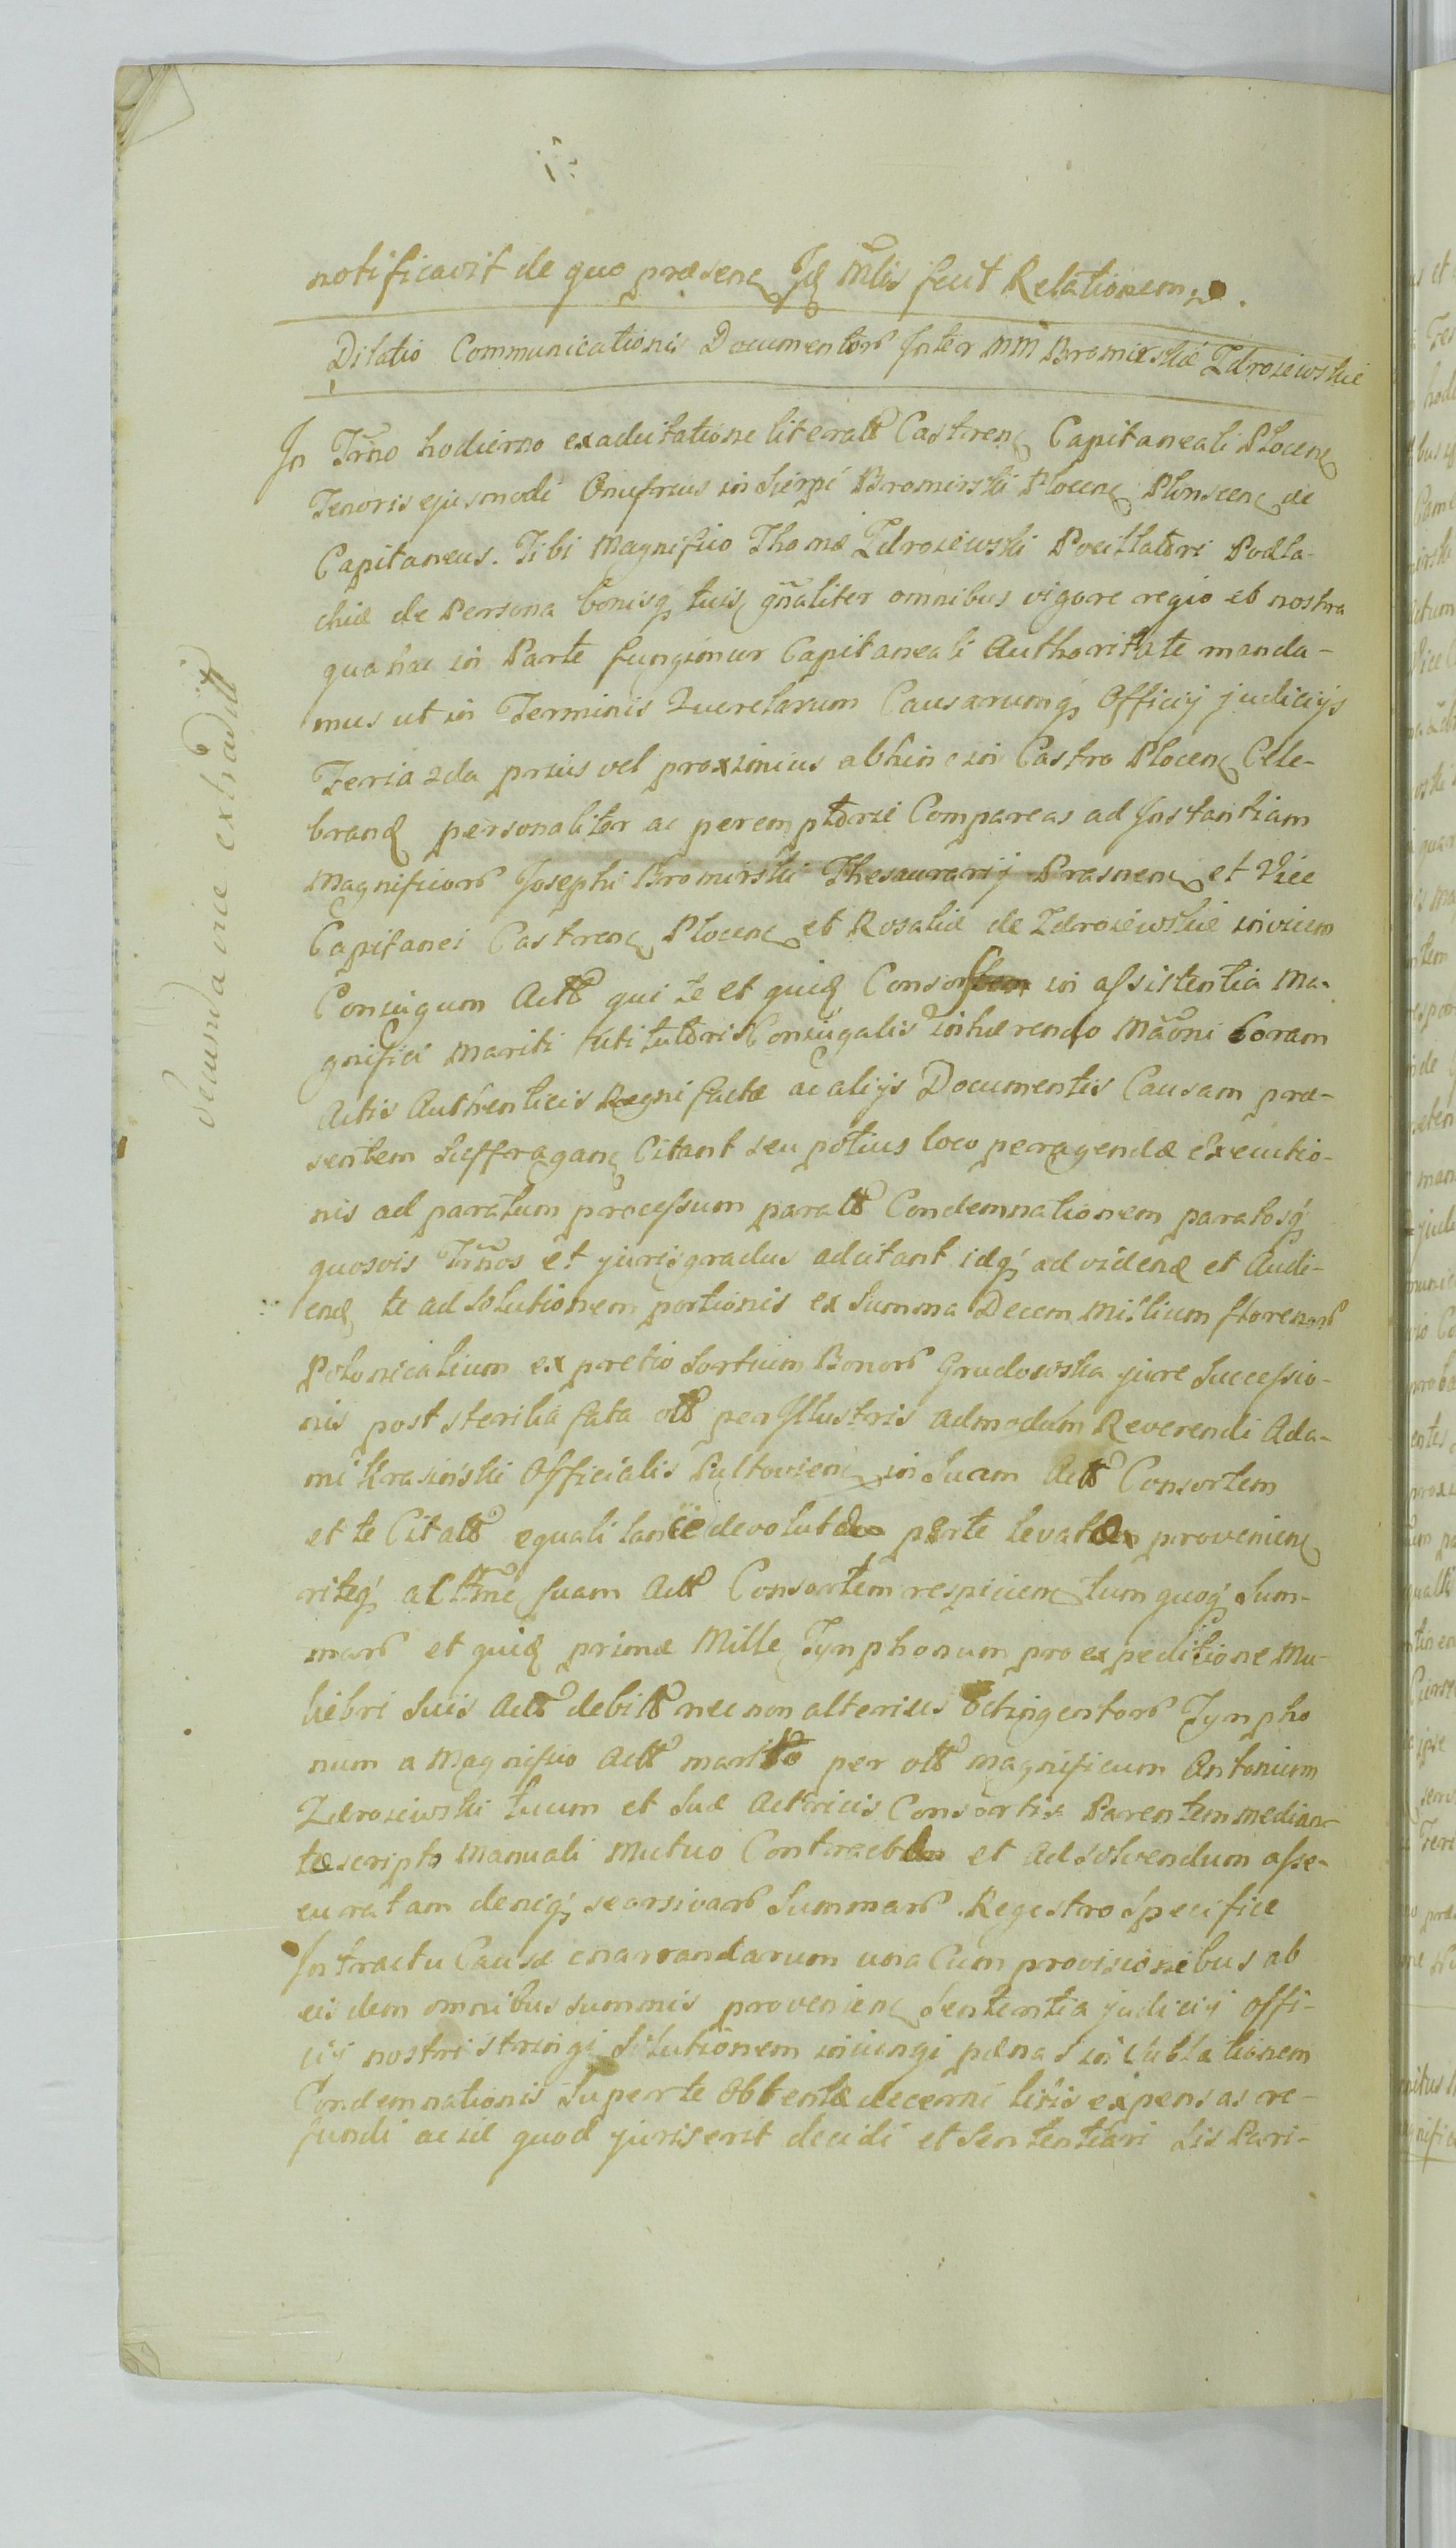 notificavit de quo præsenc Jd Mtlis fecit Relationem.
Dilatio Communicationis Documentorũ Inter MM Bromirskie Zdroiewskie
In Trño hodierno exadcitatione literalł Castrenc Capitaneali Plocenc
Tenoris ejusmodi Onufrius in Sierpc Bromirski Plocenc Plonscenc ac
Capitaneus. Tibi Magnifico Thomæ Zdroiewski Pocillatori Podla-
chiæ de Persona bonisq tuis gñaliter omnibus vigore regio et nostra
qua hac in Parte fungimur Capitaneali Authoritate manda-
mus ut in Terminis Querelarum Causarumq Officij judicijs
Feria 2da prius vel proximius abhinc in Castro Plocenc Cele-
brand personaliter ac peremptorie Compareas ad Instantiam
Magnificorũ Josephi Bromirski Thesaurarij Prasnenc et Vice
Capitanei Castrenc Plocenc et Rosaliæ de Zdroiewskie invicem
Coniugum Actł qui te et quid Consortem in assistentia Ma-
gnifici Mariti uti tutoris Coniugalis inhærendo Mãoni Coram
Actis Authenticis Regni factæ ac alijs Documentis Causam præ-
sentem Suffragan Citant seu potius loco peragendæ executio-
nis ad paratum processum paratł Condemnationem paratosq
quosvis Trños et jurisgradus adcitant idq ad videnđ et Audi-
enđ te ad Solutionem portionis ex Summa Decem Millium florenorũ
Polonicalium ex pretio Sortium Bonorũ Grudowska jure Successio-
nis post sterilia fata olł perIllustris admodum Reverendi Ada-
mi Krasinski Officialis Pultovienc in Suam Actł Consortem
et te Citatł equali lance devolut parte levat provenienc
riteq suam Actł Consortem respicienc tum quoq Sum-
marũ et quid primæ Mille Tynphonum pro expeditione Mu-
liebri Suis Actł debitł nec non alterius Octingentorũ Tynpho
num a Magnifico Actł marito per olł Magnificum Antonium
Zdroiewski tuum et Suæ Actricis Consortis Parentem median-
te scripto Manuali Mutuo Contract et ad Solvendum asse-
curatam deniq seorsivarũ Summarũ Regestro Specifice
In tractu Causæ enarrandarum una Cum provisionibus ab
eisdem omnibus summis provenienc Sententia judicij offi-
cij nostri stringi Solutionem iniungi pænas in Sublationem
Condemnationis Super te Obtentæ decerni litis expensas re-
fundi ac id quod juris erit decidi et Sententiari Lis Pari-
secunda vice extraditł